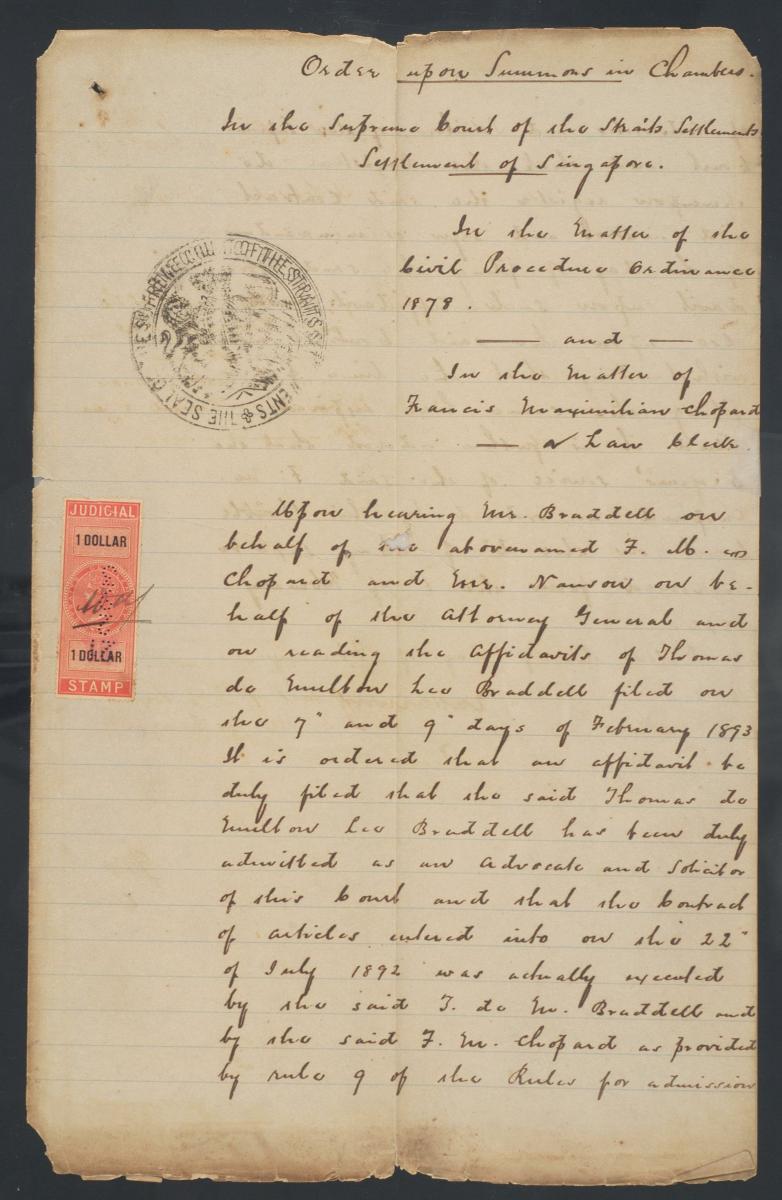 Order upon Summons in Chambers.
In the Supreme Court of the Straits Settlements
Settlement of Singapore.
In the Matter of the
Civil Procedure Ordinance
1878.
— and —
In the Matter of
Francis Maximilian Chopard
— a Law Clerk
THE SEAL OF THE SUPREME COURT OF THE STRAITS SETTLEMENTS
JUDICIAL
1 DOLLAR
1 DOLLAR
STAMP
Upon hearing Mr. Braddell on
behalf of the abovenamed F. M.
Chopard and Mr. Nanson on be-
half of the Attorney General and
on reading the Affidavits of Thomas
de Multon Lee Braddell filed on
the 7" and 9" days of February 1893
It is ordered that an affidavit be
duly filed that the said Thomas de
Multon Lee Braddell has been duly
admitted as an Advocate and Solicitor
of this Court and that the Contract
of articles entered into on the 22"
of July 1892 was actually executed
by the said T. de M. Braddell and
by the said F. M. Chopard as provided
by rule 9 of the Rules for admission